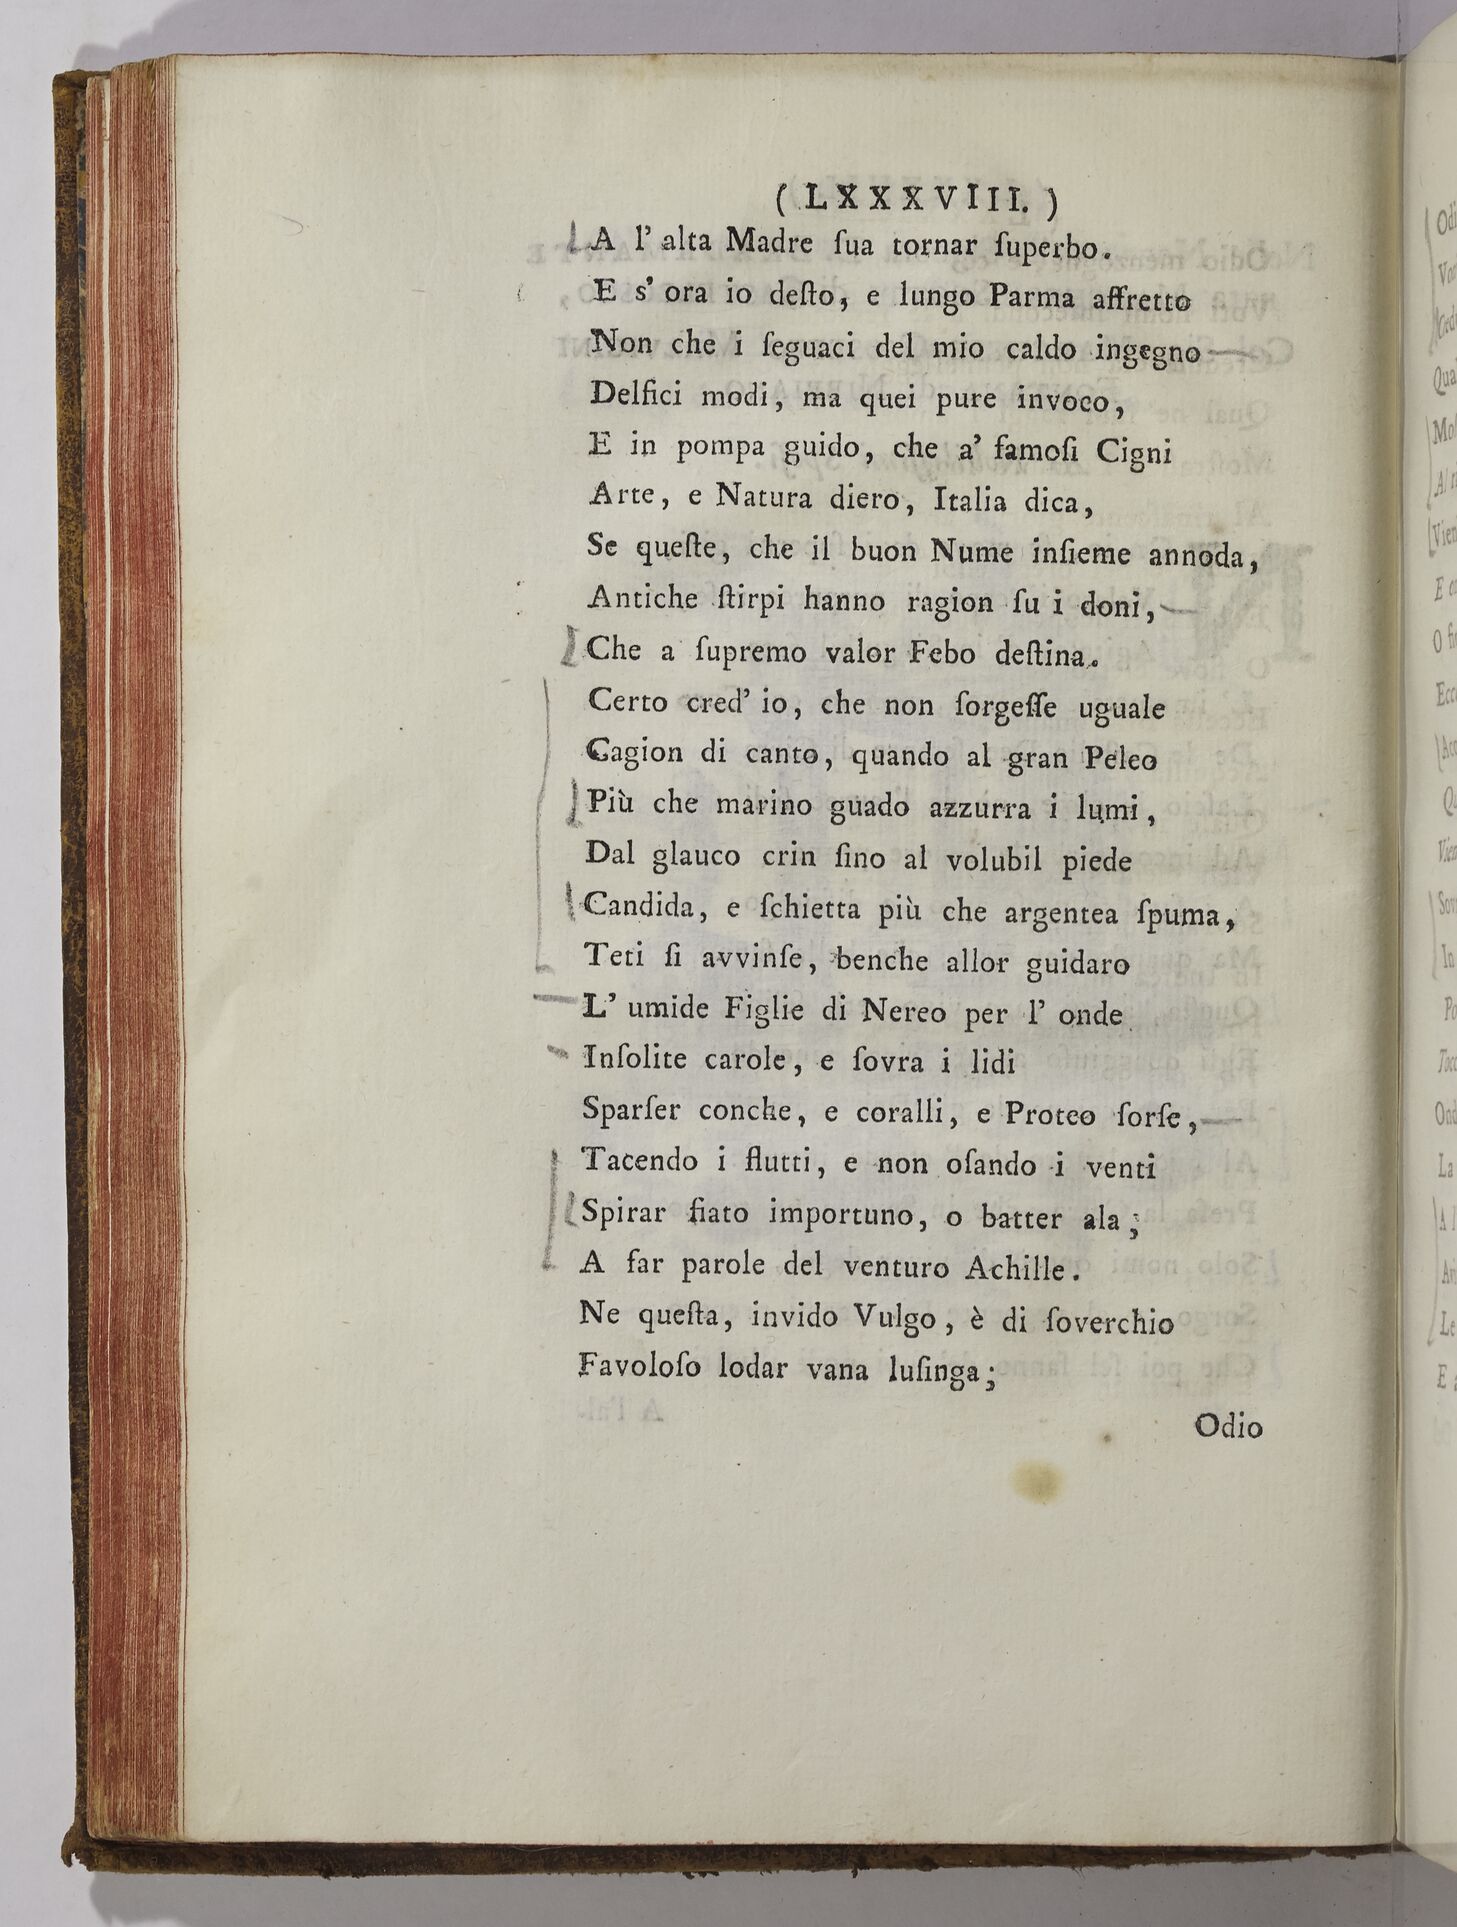 (LXXXVIII.)
A l' alta Madre ſua tornar ſuperbo.
E s' ora io deſto, e lungo Parma affretto
Non che i ſeguaci del mio caldo ingegno
Delfici modi, ma quei pure invoco,
E in pompa guido, che a' famoſi Cigni
Arte, e Natura diero, Italia dica,
Se queſte, che il buon Nume inſieme annoda,
Antiche ſtirpi hanno ragion ſu i doni,
Che a ſupremo valor Febo deſtina.
Certo cred' io, che non ſorgeſſe uguale
Cagion di canto, quando al gran Peleo
Più che marino guado azzurra i lumi,
Dal glauco crin ſino al volubil piede
Candida, e ſchietta più che argentea ſpuma,
Teti ſi avvinſe, benche allor guidaro
L' umide Figlie di Nereo per l' onde
Inſolite carole, e ſovra i lidi
Sparſer conche, e coralli, e Proteo ſorſe,
Tacendo i flutti, e non oſando i venti
Spirar fiato importuno, o batter ala;
A far parole del venturo Achille.
Ne queſta, invido Vulgo, è di ſoverchio
Favoloſo lodar vana luſinga;
Odio